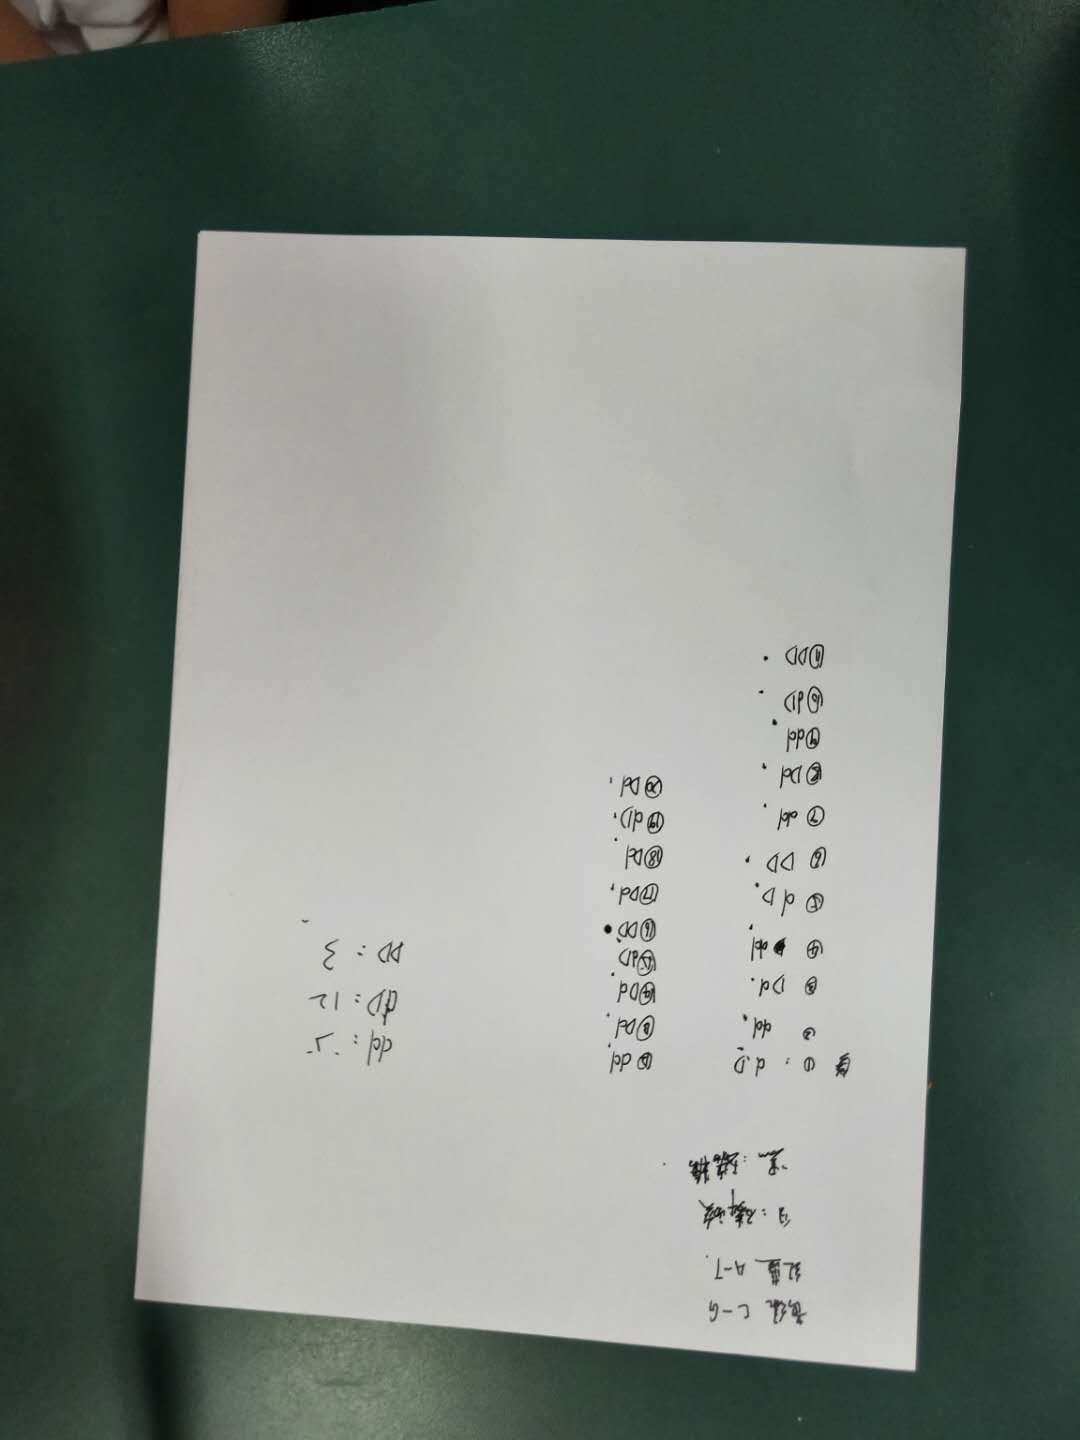 黄绿 C-G
红蓝 A-T.
白:磷酸
① : dD
② dd.
③ Dd.
④ dd.
⑤ dD.
⑥ DD.
⑦ dd.
⑧ Dd.
⑨ dd.
⑩ dD.
⑪ DD.
⑫ dd.
⑬ Dd.
⑭ Dd.
⑮ dD.
⑯ DD.
⑰ Dd.
⑱ Dd.
⑲ dD.
⑳ Dd.
dd: 5
dD: 12
DD: 3